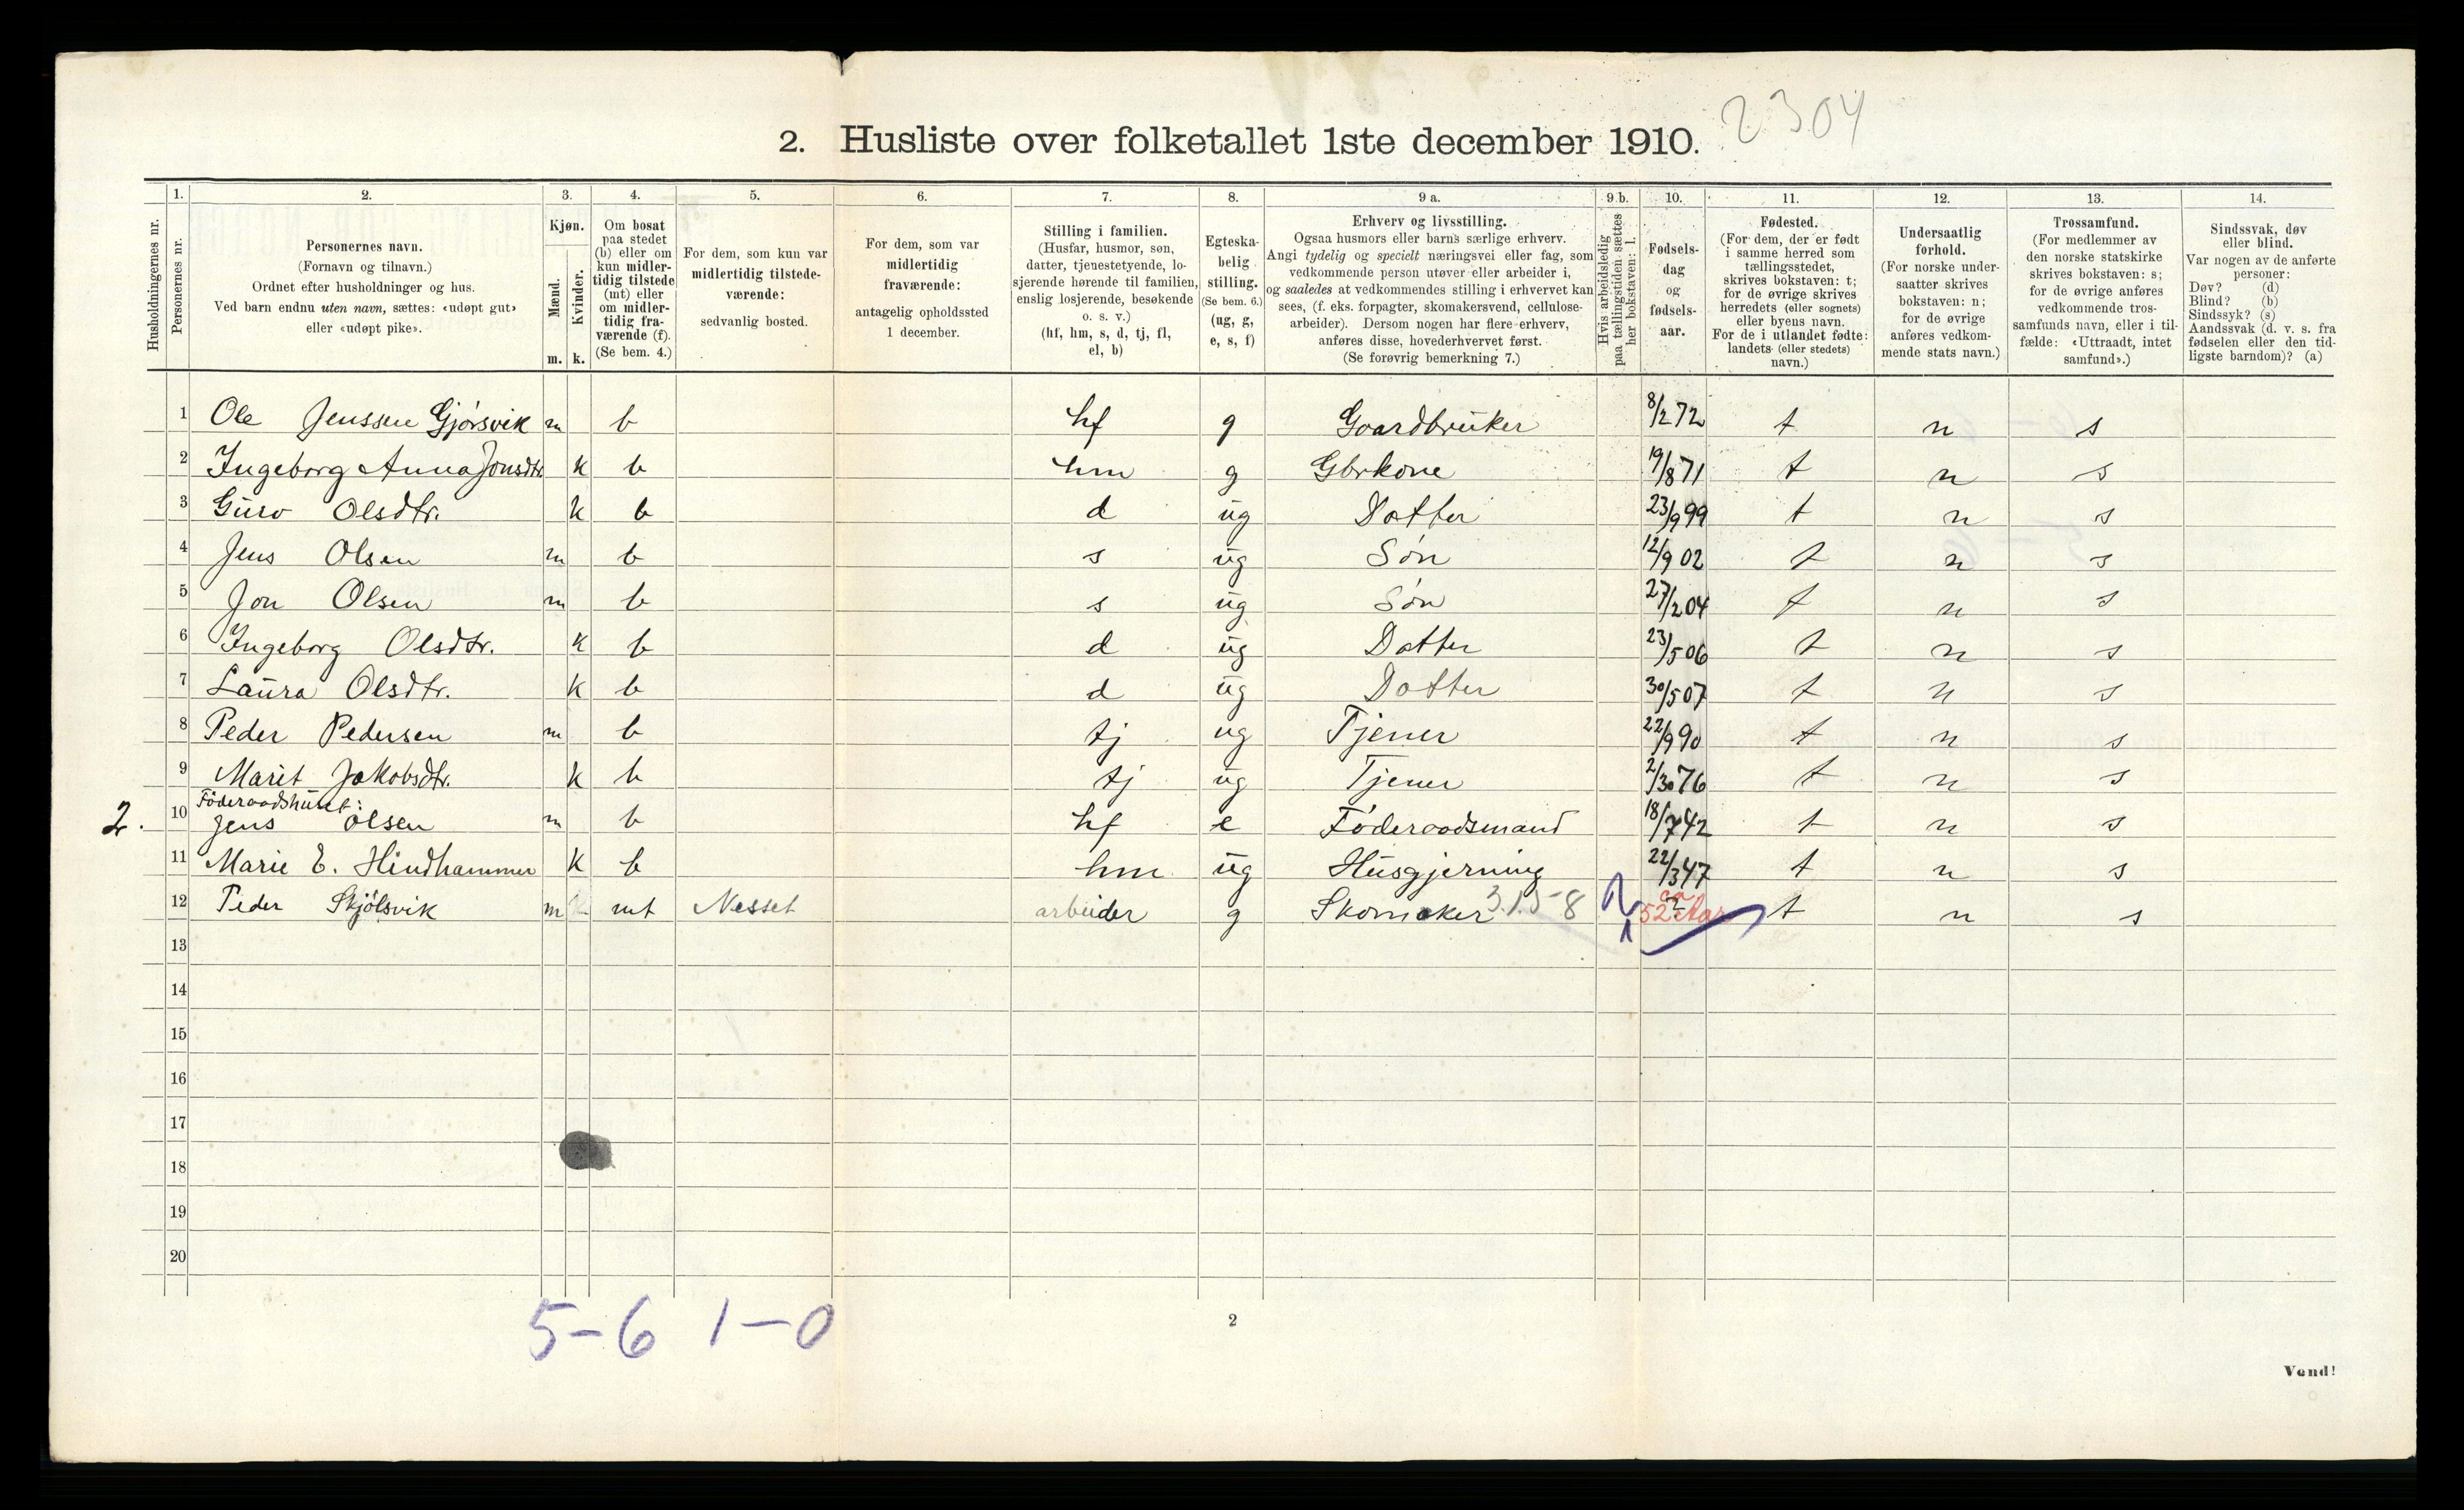 2304
2. Husliste over folketallet 1ste december 1910.
Husholdningernes nr.
1. Personernes nr.
2. Personernes navn. (Fornavn og tilnavn.) Ordnet efter husholdninger og hus. Ved barn endnu uten navn, sættes: «udøpt gut» eller «udøpt pike».
3. Kjøn. Mænd. m. Kvinder. k.
4. Om bosat paa stedet (b) eller om kun midlertidig tilstede (mt) eller om midlertidig fraværende (f). (Se bem. 4.)
5. For dem, som kun var midlertidig tilstedeværende: sedvanlig bosted.
6. For dem, som var midlertidig fraværende: antagelig opholdssted 1 december.
7. Stilling i familien. (Husfar, husmor, søn, datter, tjenestetyende, losjerende hørende til familien, enslig losjerende, besøkende o. s. v.) (hf, hm, s, d, tj, fl, el, b)
8. Egteskabelig stilling. (Se bem. 6.) (ug, g, e, s, f)
9 a. Erhverv og livsstilling. Ogsaa husmors eller barns særlige erhverv. Angi tydelig og specielt næringsvei eller fag, som vedkommende person utøver eller arbeider i, og saaledes at vedkommendes stilling i erhvervet kan sees, (f. eks. forpagter, skomakersvend, cellulosearbeider). Dersom nogen har flere erhverv, anføres disse, hovederhvervet først. (Se forøvrig bemerkning 7.)
9 b. Hvis arbeidsledig paa tællingstiden sættes her bokstaven: l.
10. Fødselsdag og fødselsaar.
11. Fødested. (For dem, der er født i samme herred som tællingsstedet, skrives bokstaven: t; for de øvrige skrives herredets (eller sognets) eller byens navn. For de i utlandet fødte: landets (eller stedets) navn.)
12. Undersaatlig forhold. (For norske undersaatter skrives bokstaven: n; for de øvrige anføres vedkommende stats navn.)
13. Trossamfund. (For medlemmer av den norske statskirke skrives bokstaven: s; for de øvrige anføres vedkommende trossamfunds navn, eller i tilfælde: «Uttraadt, intet samfund».)
14. Sindssvak, døv eller blind. Var nogen av de anførte personer: Døv? (d) Blind? (b) Sindssyk? (s) Aandssvak (d. v. s. fra fødselen eller den tidligste barndom)? (a)
1 Ole Jenssen Gjörsvik m b hf g Gaardbruker 8/2 72 t n s
2 Ingeborg Anna Jonsdtr. k b hm g Gbrkone 19/8 71 t n s
3 Guro Olsdtr. k b d ug Datter 23/9 99 t n s
4 Jens Olsen m b s ug Sön 12/9 02 t n s
5 Jon Olsen m b s ug Sön 27/2 04 t n s
6 Ingeborg Olsdtr. k b d ug Datter 23/5 06 t n s
7 Laura Olsdtr. k b d ug Datter 30/5 07 t n s
8 Peder Pedersen m b tj ug Tjener 22/9 90 t n s
9 Marit Jakobsdtr. k b tj ug Tjener 2/30 76 t n s
Föderaadshuset:
2. 10 Jens Olsen m b hf e Föderaadsmand 18/7 42 t n s
11 Marie E. Hindhammer k b hm ug Husgjerning 22/3 47 t n s
12 Peder Skjölsvik m mt Nesset arbeider g Skomaker 3.1.5-8 ca 52 Aar t n s
13
14
15
16
17
18
19
20
5-6 1-0
2
Vend!